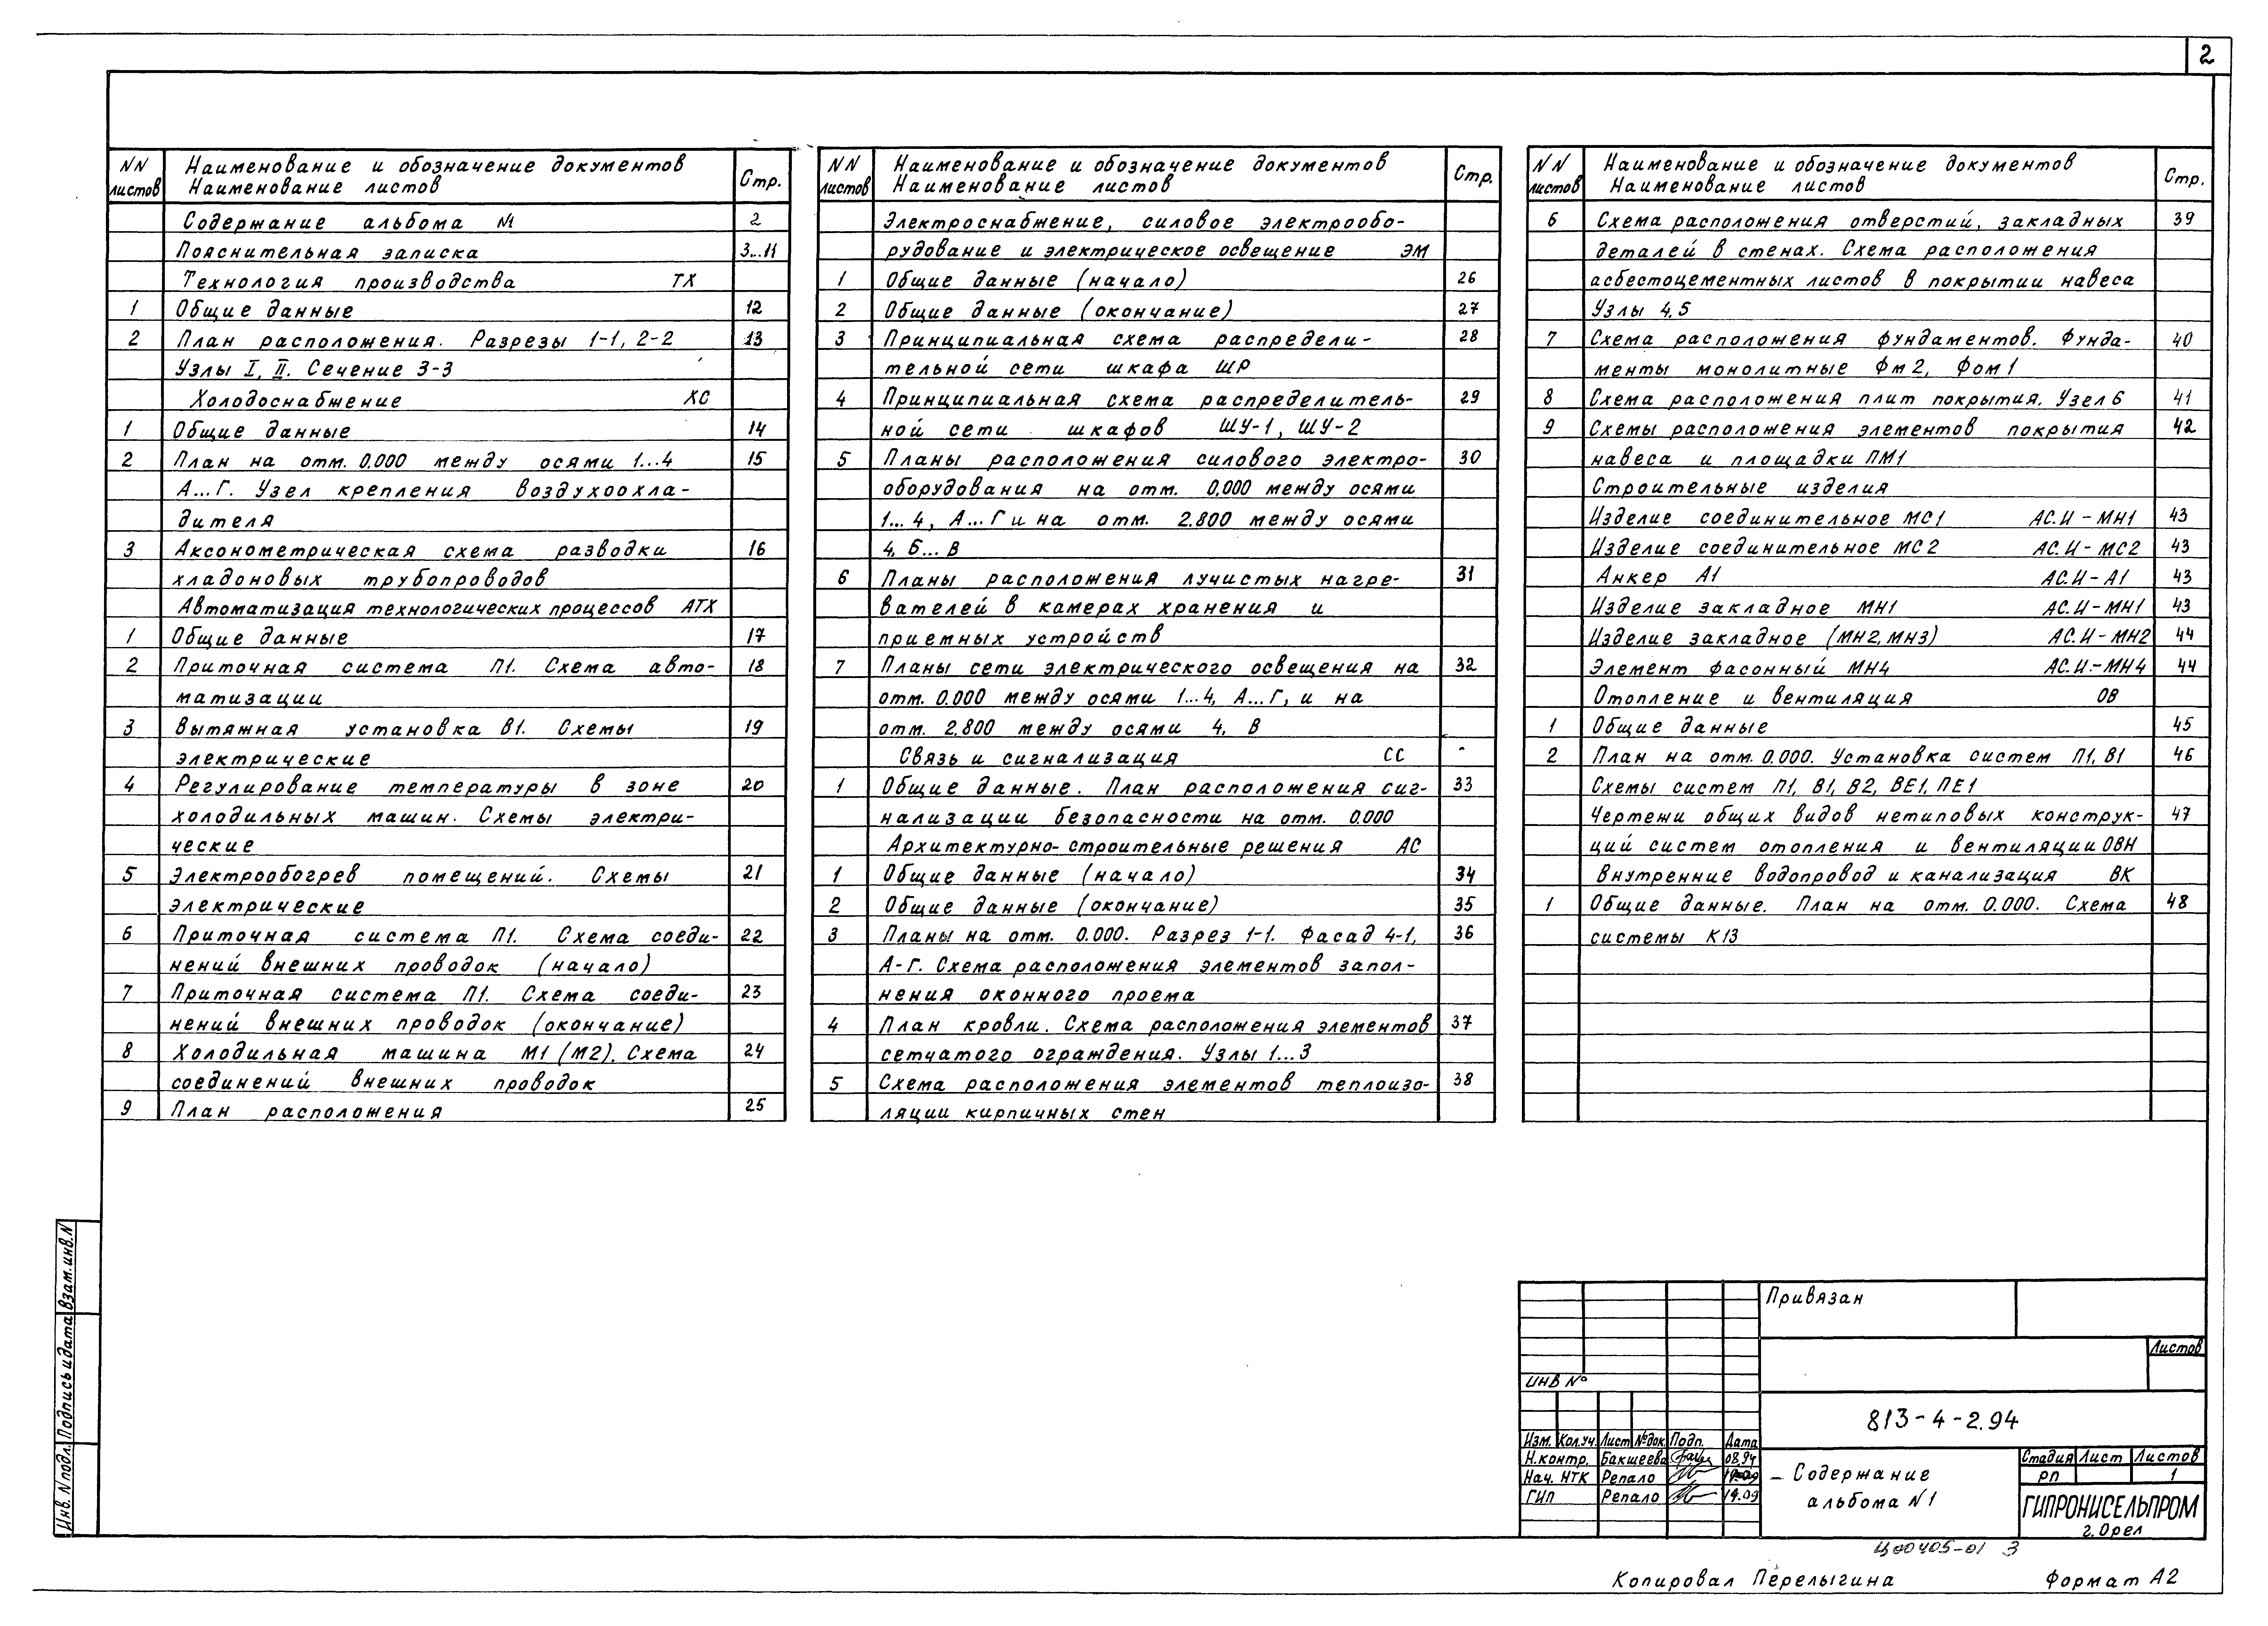 2
NN листов Наименование и обозначение документов Наименование листов Стр.
Содержание альбома N1 2
Пояснительная записка 3...11
Технология производства ТХ
1 Общие данные 12
2 План расположения. Разрезы 1-1, 2-2 13
Узлы I, II. Сечение 3-3
Холодоснабжение ХС
1 Общие данные 14
2 План на отм. 0.000 между осями 1...4 15
А...Г. Узел крепления воздухоохла-
дителя
3 Аксонометрическая схема разводки 16
хладоновых трубопроводов
Автоматизация технологических процессов АТХ
1 Общие данные 17
2 Приточная система П1. Схема авто- 18
матизации
3 Вытяжная установка В1. Схемы 19
электрические
4 Регулирование температуры в зоне 20
холодильных машин. Схемы электри-
ческие
5 Электрообогрев помещений. Схемы 21
электрические
6 Приточная система П1. Схема соеди- 22
нений внешних проводок (начало)
7 Приточная система П1. Схема соеди- 23
нений внешних проводок (окончание)
8 Холодильная машина М1 (М2). Схема 24
соединений внешних проводок
9 План расположения 25
NN листов Наименование и обозначение документов Наименование листов Стр.
Электроснабжение, силовое электрообо-
рудование и электрическое освещение ЭМ
1 Общие данные (начало) 26
2 Общие данные (окончание) 27
3 Принципиальная схема распредели- 28
тельной сети шкафа ШР
4 Принципиальная схема распределитель- 29
ной сети шкафов ШУ-1, ШУ-2
5 Планы расположения силового электро- 30
оборудования на отм. 0,000 между осями
1...4, А...Г и на отм. 2.800 между осями
4, Б...В
6 Планы расположения лучистых нагре- 31
вателей в камерах хранения и
приемных устройств
7 Планы сети электрического освещения на 32
отм. 0.000 между осями 1...4, А...Г, и на
отм. 2,800 между осями 4, В
Связь и сигнализация СС -
1 Общие данные. План расположения сиг- 33
нализации безопасности на отм. 0.000
Архитектурно-строительные решения АС
1 Общие данные (начало) 34
2 Общие данные (окончание) 35
3 Планы на отм. 0.000. Разрез 1-1. Фасад 4-1, 36
А-Г. Схема расположения элементов запол-
нения оконного проема
4 План кровли. Схема расположения элементов 37
сетчатого ограждения. Узлы 1...3
5 Схема расположения элементов теплоизо- 38
ляции кирпичных стен
NN листов Наименование и обозначение документов Наименование листов Стр.
6 Схема расположения отверстий, закладных 39
деталей в стенах. Схема расположения
асбестоцементных листов в покрытии навеса
Узлы 4,5
7 Схема расположения фундаментов. Фунда- 40
менты монолитные Фм2, Фом1
8 Схема расположения плит покрытия. Узел 6 41
9 Схемы расположения элементов покрытия 42
навеса и площадки ПМ1
Строительные изделия
Изделие соединительное МС1 АС.И-МН1 43
Изделие соединительное МС2 АС.И-МС2 43
Анкер А1 АС.И-А1 43
Изделие закладное МН1 АС.И-МН1 43
Изделие закладное (МН2, МН3) АС.И-МН2 44
Элемент фасонный МН4 АС.И.-МН4 44
Отопление и вентиляция ОВ
1 Общие данные 45
2 План на отм. 0.000. Установка систем П1, В1 46
Схемы систем П1, В1, В2, ВЕ1, ПЕ1
Чертежи общих видов нетиповых конструк- 47
ций систем отопления и вентиляции ОВН
Внутренние водопровод и канализация ВК
1 Общие данные. План на отм. 0.000. Схема 48
системы К13
Инв. N подл. Подпись и дата Взам. инв. N
Привязан
Листов
ИНВ №
813-4-2.94
Изм. Кол.уч. Лист №док. Подп. Дата
Н.контр. Бакшеева 08.94
Нач. НТК Репало
ГИП Репало 19.09
Содержание
альбома N1
Стадия Лист Листов
РП 1
ГИПРОНИСЕЛЬПРОМ
г. Орел
Ц00405-01 3
Копировал Перелыгина Формат А2